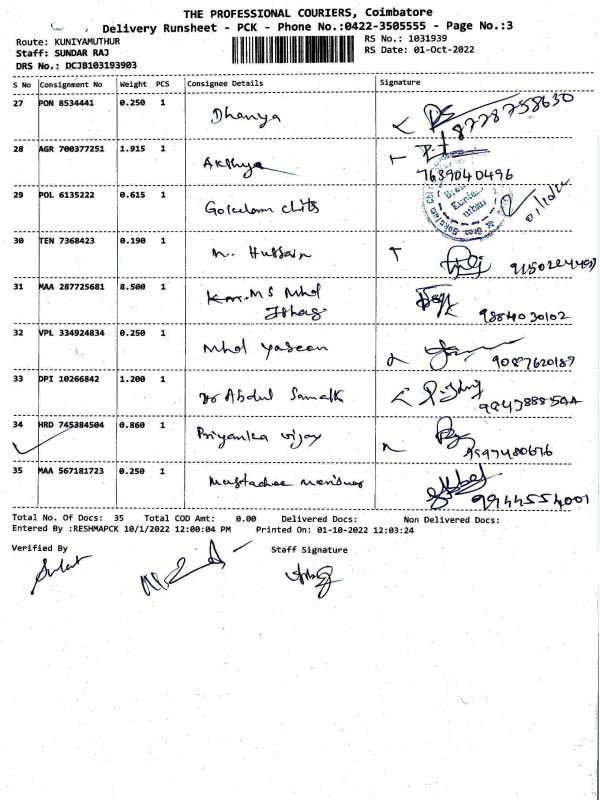 THE PROFESSIONAL COURIERS, Coimbatore
Delivery Runsheet - PCK - Phone No.:0422-3505555 - Page No.:3
Route: KUNIYAMUTHUR
RS No.: 1031939
Staff: SUNDAR RAJ
RS Date: 01-Oct-2022
DRS No.: DCJB103193903
S No Consignment No Weight PCS Consignee Details Signature
27 PON 8534441 0.250 1 Dhanya 8778758630
28 AGR 700377251 1.915 1 Akshya 7639040496
29 POL 6135222 0.615 1 Gokulam chits 01/10/22
30 TEN 7368423 0.190 1 M. Hussain
31 MAA 287725681 8.500 1 K.M. MS Mhd
Ishag 9884030102
32 VPL 334924834 0.250 1 Mhd Yaseen 9087620187
33 DPI 10266842 1.200 1 Dr Abdul Samath
34 HRD 745384504 0.860 1 Priyanka vijay 9597480676
35 MAA 567181723 0.250 1 Mustachee 9944554001
Total No. Of Docs: 35 Total COD Amt: 0.00 Delivered Docs: Non Delivered Docs:
Entered By :RESHMAPCK 10/1/2022 12:00:04 PM Printed On: 01-10-2022 12:03:24
Verified By Staff Signature